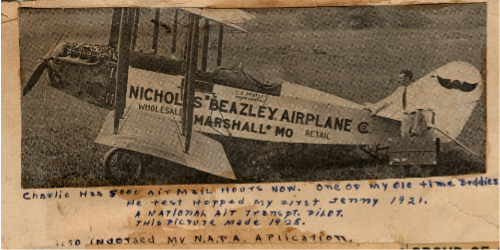 NICHOLAS-BEAZLEY AIRPLANE Co
WHOLESALE RETAIL
MARSHALL MO
Charlie Has 5000 Air Mail Hours Now. One of My Ole time Buddies
He test Hopped My First Jenny 1921.
A NATIONAL AIR TRANSPT. PILOT.
THIS PICTURE MADE 1925.
Indorsed My N.A.P.A. APlication.